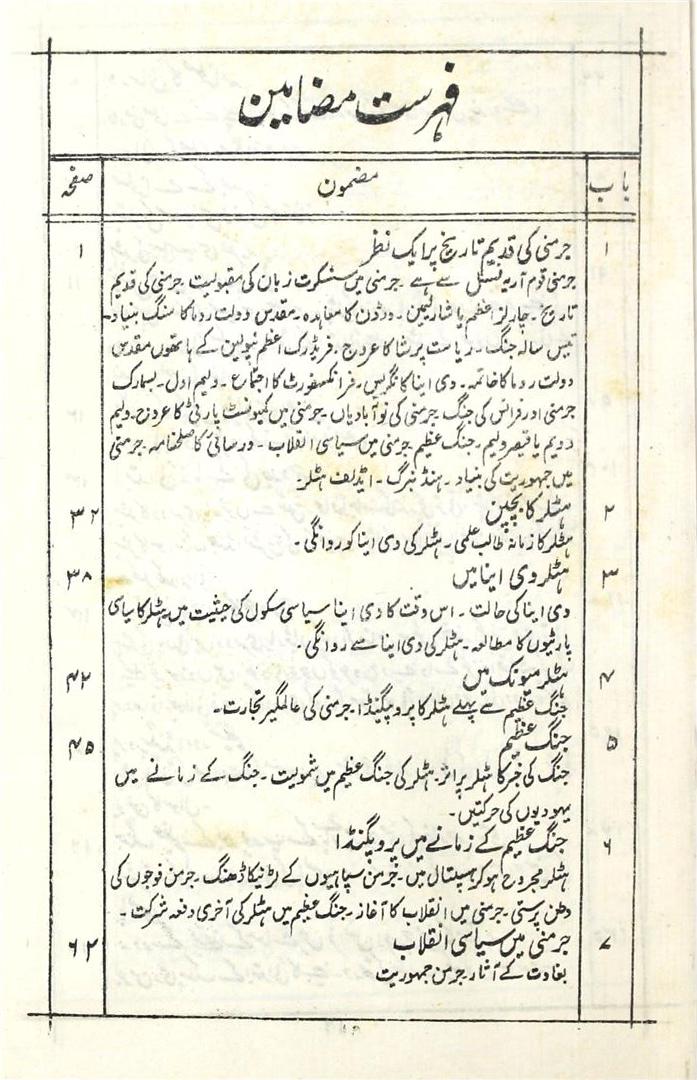 فہرست مضامین
باب مضمون صفحہ
۱ جرمنی کی قدیم تاریخ پر ایک نظر ۱
جرمنی قوم آریہ نسل سے ہے ۔ جرمنی میں سنسکرت زبان کی مقبولیت ۔ جرمنی کی قدیم
تاریخ ۔ چارلز اعظم یا شارلیمین ۔ وردن کا معاہدہ ۔ مقدس دولت روما کا سنگ بنیاد ۔
تیس سالہ جنگ ۔ ریاست پرشا کا عروج ۔ فریڈرک اعظم نپولین کے ہاتھوں مقدس
دولت روما کا خاتمہ ۔ وی اینا کانگریس ۔ فرانکفورٹ کا اجتماع ۔ ولیم اول ۔ بسمارک
جرمنی اور فرانس کی جنگ جرمنی کی نو آبادیاں ۔ جرمنی میں کمیونسٹ پارٹی کا عروج ۔ ولیم
دویم یا قیصر ولیم ۔ جنگ عظیم جرمنی میں سیاسی انقلاب ۔ ورسائی کا صلحنامہ ۔ جرمنی
میں جمہوریت کی بنیاد ۔ ہنڈنبرگ ۔ ایڈلف ہٹلر ۔
۲ ہٹلر کا بچپن ۳۲
ہٹلر کا زمانہ طالب علمی ۔ ہٹلر کی وی اینا کو روانگی ۔
۳ ہٹلر وی اینا میں ۳۸
وی اینا کی حالت ۔ اس وقت کا وی اینا سیاسی سکول کی حیثیت میں ہٹلر کا سیاسی
پارٹیوں کا مطالعہ ۔ ہٹلر کی وی اینا سے روانگی ۔
۴ ہٹلر میونک میں ۴۲
جنگ عظیم سے پہلے ہٹلر کا پروپیگنڈا جرمنی کی عالمگیر تجارت ۔
۵ جنگ عظیم ۴۵
جنگ کی خبر کا ہٹلر پر اثر ۔ ہٹلر کی جنگ عظیم میں شمولیت ۔ جنگ کے زمانے میں
یہودیوں کی حرکتیں ۔
۶ جنگ عظیم کے زمانے میں پروپگنڈا
ہٹلر مجروح ہو کر ہسپتال میں ۔ جرمن سپاہیوں کے لڑنیکا ڈھنگ ۔ جرمن فوجوں کی
وطن پرستی ۔ جرمنی میں انقلاب کا آغاز ۔ جنگ عظیم میں ہٹلر کی آخری دفعہ شرکت ۔
۷ جرمنی میں سیاسی انقلاب ۶۲
بغاوت کے آثار جرمن جمہوریت